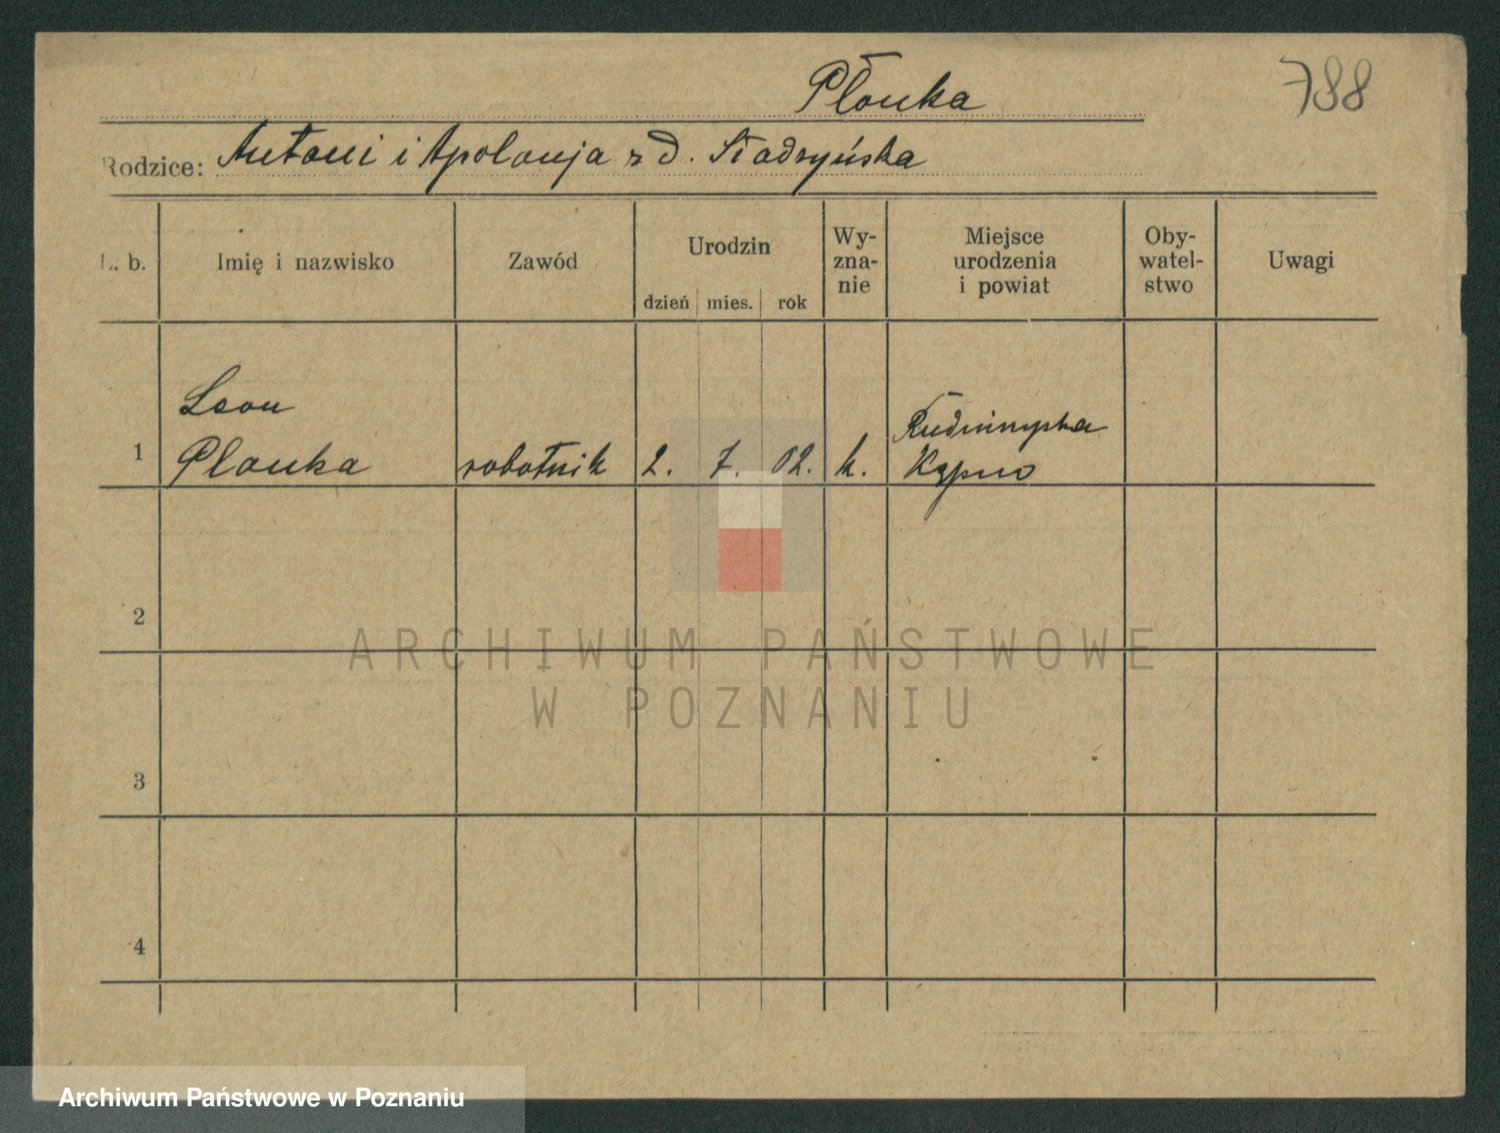 Płonka
788
Rodzice: Antoni i Apolonja z d. Siadzyńska
L. b.
Imię i nazwisko
Zawód
Urodzin
dzień mies. rok
Wy-
zna-
nie
Miejsce
urodzenia
i powiat
Oby-
watel-
stwo
Uwagi
1
Leon
Płonka
robotnik
2. 7. 02.
k.
Kępno
2
3
4
ARCHIWUM PAŃSTWOWE
W POZNANIU
Archiwum Państwowe w Poznaniu